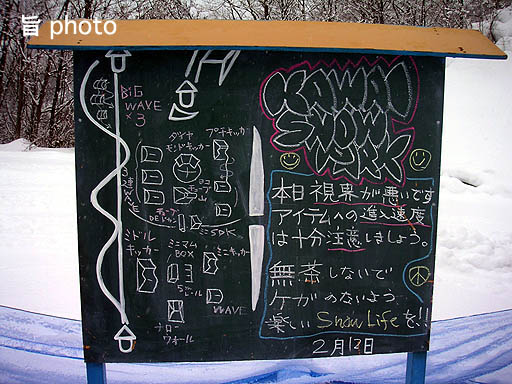 旨 photo
BiG
WAVE
×3
ダイヤ
モンドキッカー
プチキッカー
3連
WAVE
ミドル
キッカー
ミニマム
BOX
ミニキッカー
WAVE
ナロー
ウォール
KAWAI
SNOW
PARK
本日視界が悪いです
アイテムへの進入速度
は十分注意しましょう。
無茶しないで
ケガのないよう
楽しいSnow Lifeを!!
2月12日